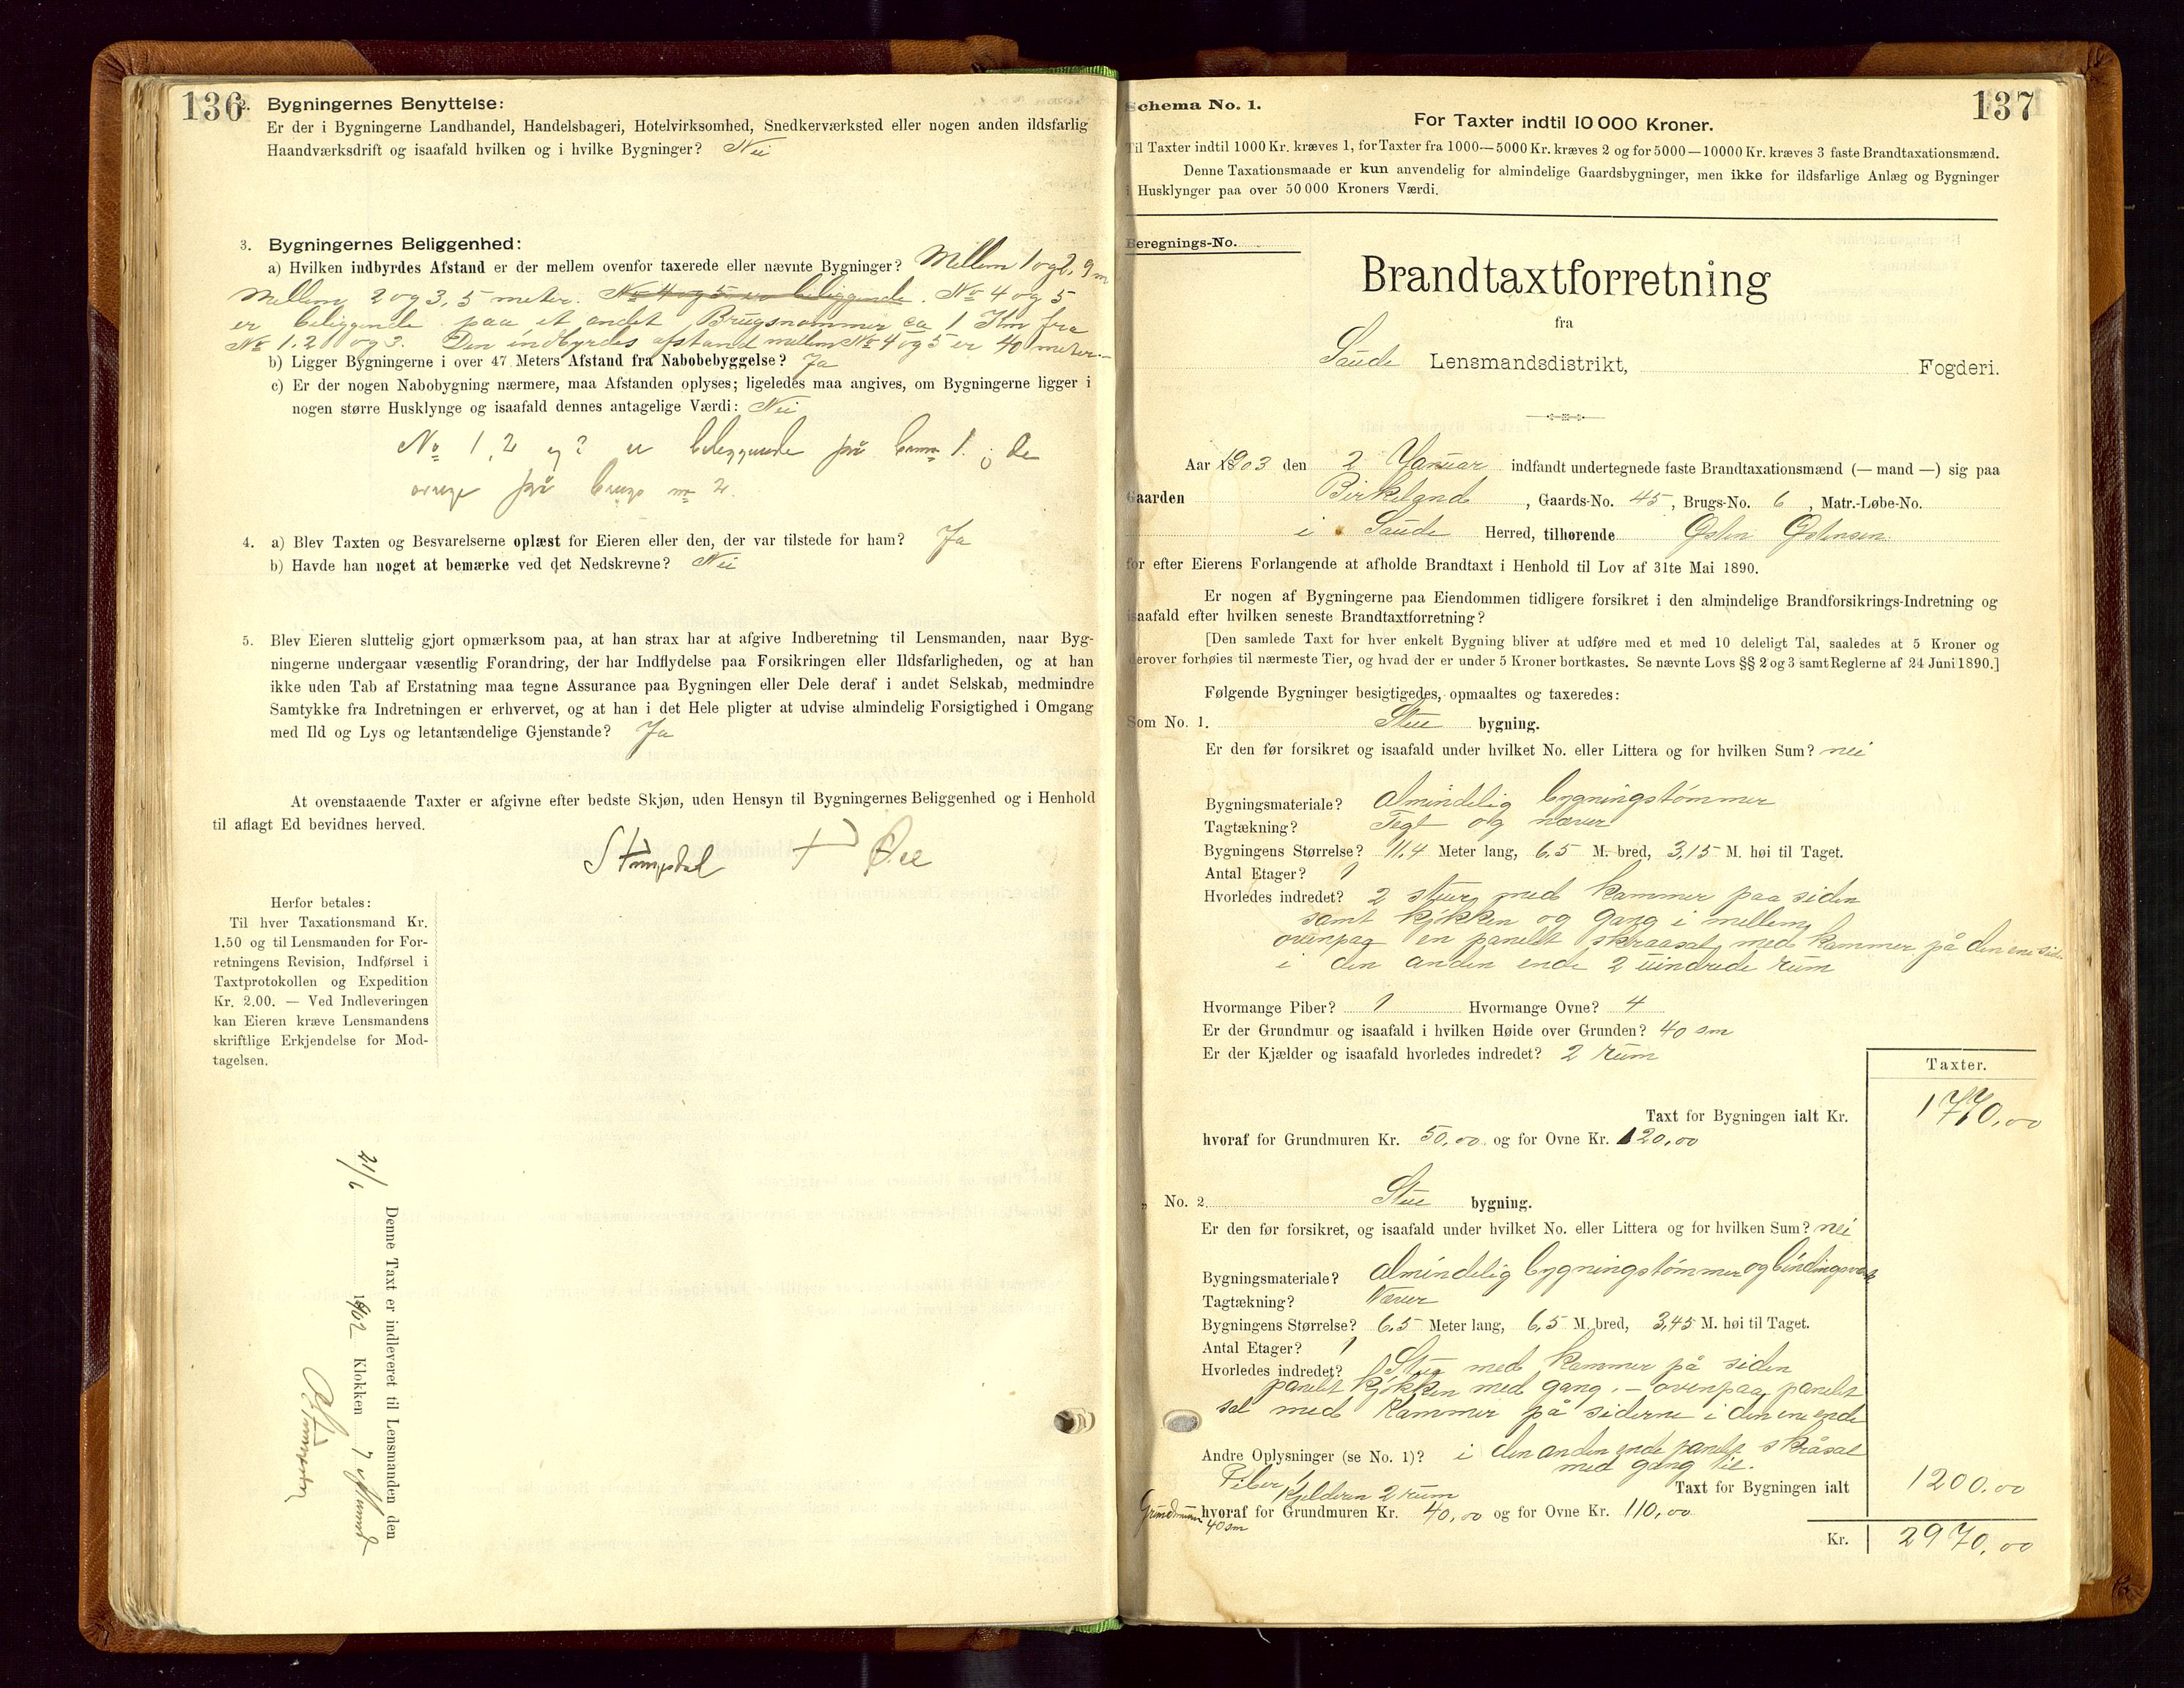 136
2. Bygningernes Benyttelse:
Er der i Bygningerne Landhandel, Handelsbageri, Hotelvirksomhed, Snedkerværksted eller nogen anden ildsfarlig
Haandværksdrift og isaafald hvilken og i hvilke Bygninger? Nei
3. Bygningernes Beliggenhed:
a) Hvilken indbyrdes Afstand er der mellem ovenfor taxerede eller nævnte Bygninger? Mellem 1 og 2, 9 m
Mellem 2 og 3, 5 meter. No 4 og 5 er beliggende. No 4 og 5
er beliggende paa et andet Brugsnommer ca 1 Km fra
No 1. 2 og 3. Den indbyrdes afstand mellem No 4 og 5 er 40 meter.-
b) Ligger Bygningerne i over 47 Meters Afstand fra Nabobebyggelse? Ja
c) Er der nogen Nabobygning nærmere, maa Afstanden oplyses; ligeledes maa angives, om Bygningerne ligger i
nogen større Husklynge og isaafald dennes antagelige Værdi: Nei
No 1, 2 og 3 er beliggende på 1. de
på brugs no 2.
4. a) Blev Taxten og Besvarelserne oplæst for Eieren eller den, der var tilstede for ham? Ja
b) Havde han noget at bemærke ved det Nedskrevne? Nei
5. Blev Eieren sluttelig gjort opmærksom paa, at han strax har at afgive Indberetning til Lensmanden, naar Byg-
ningerne undergaar væsentlig Forandring, der har Indflydelse paa Forsikringen eller Ildsfarligheden, og at han
ikke uden Tab af Erstatning maa tegne Assurance paa Bygningen eller Dele deraf i andet Selskab, medmindre
Samtykke fra Indretningen er erhvervet, og at han i det Hele pligter at udvise almindelig Forsigtighed i Omgang
med Ild og Lys og letantændelige Gjenstande? Ja
At ovenstaaende Taxter er afgivne efter bedste Skjøn, uden Hensyn til Bygningernes Beliggenhed og i Henhold
til aflagt Ed bevidnes herved.
Herfor betales:
Til hver Taxationsmand Kr.
1.50 og til Lensmanden for For-
retningens Revision, Indførsel i
Taxtprotokollen og Expedition
Kr. 2.00. — Ved Indleveringen
kan Eieren kræve Lensmandens
skriftlige Erkjendelse for Mod-
tagelsen.
Denne Taxt er indleveret til Lensmanden den
21/6 1902 Klokken 7
137
Schema No. 1.
For Taxter indtil 10 000 Kroner.
Til Taxter indtil 1000 Kr. kræves 1, for Taxter fra 1000—5000 Kr. kræves 2 og for 5000—10000 Kr. kræves 3 faste Brandtaxationsmænd.
Denne Taxationsmaade er kun anvendelig for almindelige Gaardsbygninger, men ikke for ildsfarlige Anlæg og Bygninger
i Husklynger paa over 50 000 Kroners Værdi.
Beregnings-No.
Brandtaxtforretning
fra
Saude Lensmandsdistrikt, Fogderi.
Aar 1903 den 2 Januar indfandt undertegnede faste Brandtaxationsmænd (— mand —) sig paa
Gaarden Birkeland, Gaards-No. 45, Brugs-No. 6, Matr.-Løbe-No.
i Saude Herred, tilhørende Østen Østensen
for efter Eierens Forlangende at afholde Brandtaxt i Henhold til Lov af 31te Mai 1890.
Er nogen af Bygningerne paa Eiendommen tidligere forsikret i den almindelige Brandforsikrings-Indretning og
isaafald efter hvilken seneste Brandtaxtforretning?
[Den samlede Taxt for hver enkelt Bygning bliver at udføre med et med 10 deleligt Tal, saaledes at 5 Kroner og
derover forhøies til nærmeste Tier, og hvad der er under 5 Kroner bortkastes. Se nævnte Lovs §§ 2 og 3 samt Reglerne af 24 Juni 1890.]
Følgende Bygninger besigtigedes, opmaaltes og taxeredes:
Som No. 1. Stue bygning.
Er den før forsikret og isaafald under hvilket No. eller Littera og for hvilken Sum? nei
Bygningsmateriale? almindelig bygningstømmer
Tagtækning? Tegl og næver
Bygningens Størrelse? 11,4 Meter lang, 6,5 M. bred, 3,15 M. høi til Taget.
Antal Etager? 1
Hvorledes indredet? 2 stuer med kammer paa siden
samt kjøkken og gang i mellem
ovenpaa en panelt skraasal med kammer på den ene side
i den anden ende 2 uindrede rum
Hvormange Piber? 1 Hvormange Ovne? 4
Er der Grundmur og isaafald i hvilken Høide over Grunden? 40 sm
Er der Kjælder og isaafald hvorledes indredet? 2 rum
Taxter.
Taxt for Bygningen ialt Kr. 1770,00
hvoraf for Grundmuren Kr. 50,00 og for Ovne Kr. 120,00
" No. 2. Stue bygning.
Er den før forsikret, og isaafald under hvilket No. eller Littera og for hvilken Sum? nei
Bygningsmateriale? almindelig bygningstømmer og bindingsverk
Tagtækning? Næver
Bygningens Størrelse? 6,5 Meter lang, 6,5 M. bred, 3,45 M. høi til Taget.
Antal Etager? 1
Hvorledes indredet? 1 Stue med kammer på siden
panelt kjøkken med gang. - ovenpaa panelt
sal med kammer på siderne i den ene ende
Andre Oplysninger (se No. 1)? i den anden ende panelt skråsal
med gang til.
Piber 1 Kjelderen 2 rum
Taxt for Bygningen ialt 1200.00
Grundmuren 40 sm hvoraf for Grundmuren Kr. 40,00 og for Ovne Kr. 110,00
Kr. 2970,00